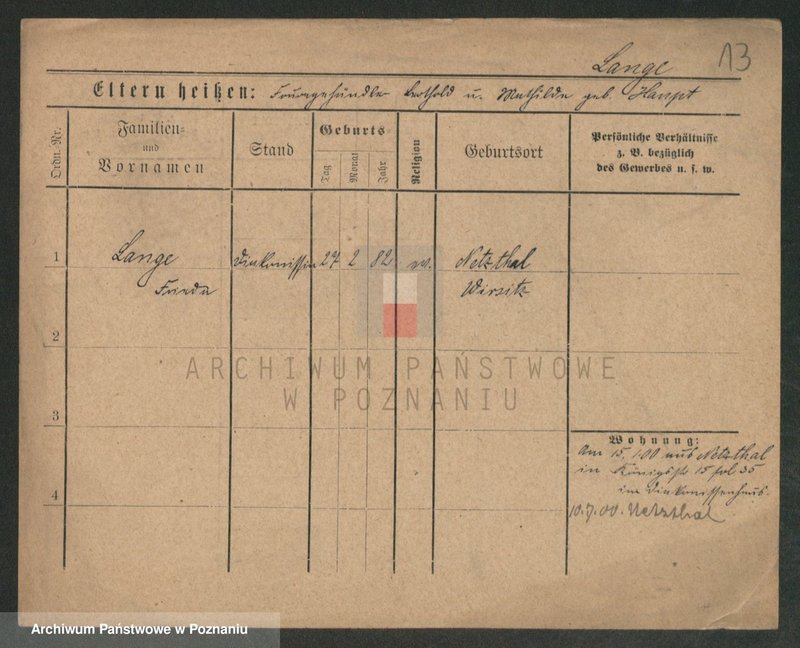 Lange 13
Eltern heißen: Fouragehändler Berthold u. Mathilde geb. Haupt
Ordn.-Nr.
Familien-
und
Vornamen
Stand
Geburts-
Tag
Monat
Jahr
Religion
Geburtsort
Persönliche Verhältnisse
z. B. bezüglich
des Gewerbes u. s. w.
1 Lange Diakonissin 27 2 82 ev. Netzthal
Frieda Wirsitz
2
ARCHIWUM PAŃSTWOWE
W POZNANIU
3
Wohnung:
Am 15. 1.00 aus Netzthal
in Königstr 15 fol 35
im Diakonissenhaus.
4
10.7.00. Netzthal
Archiwum Państwowe w Poznaniu